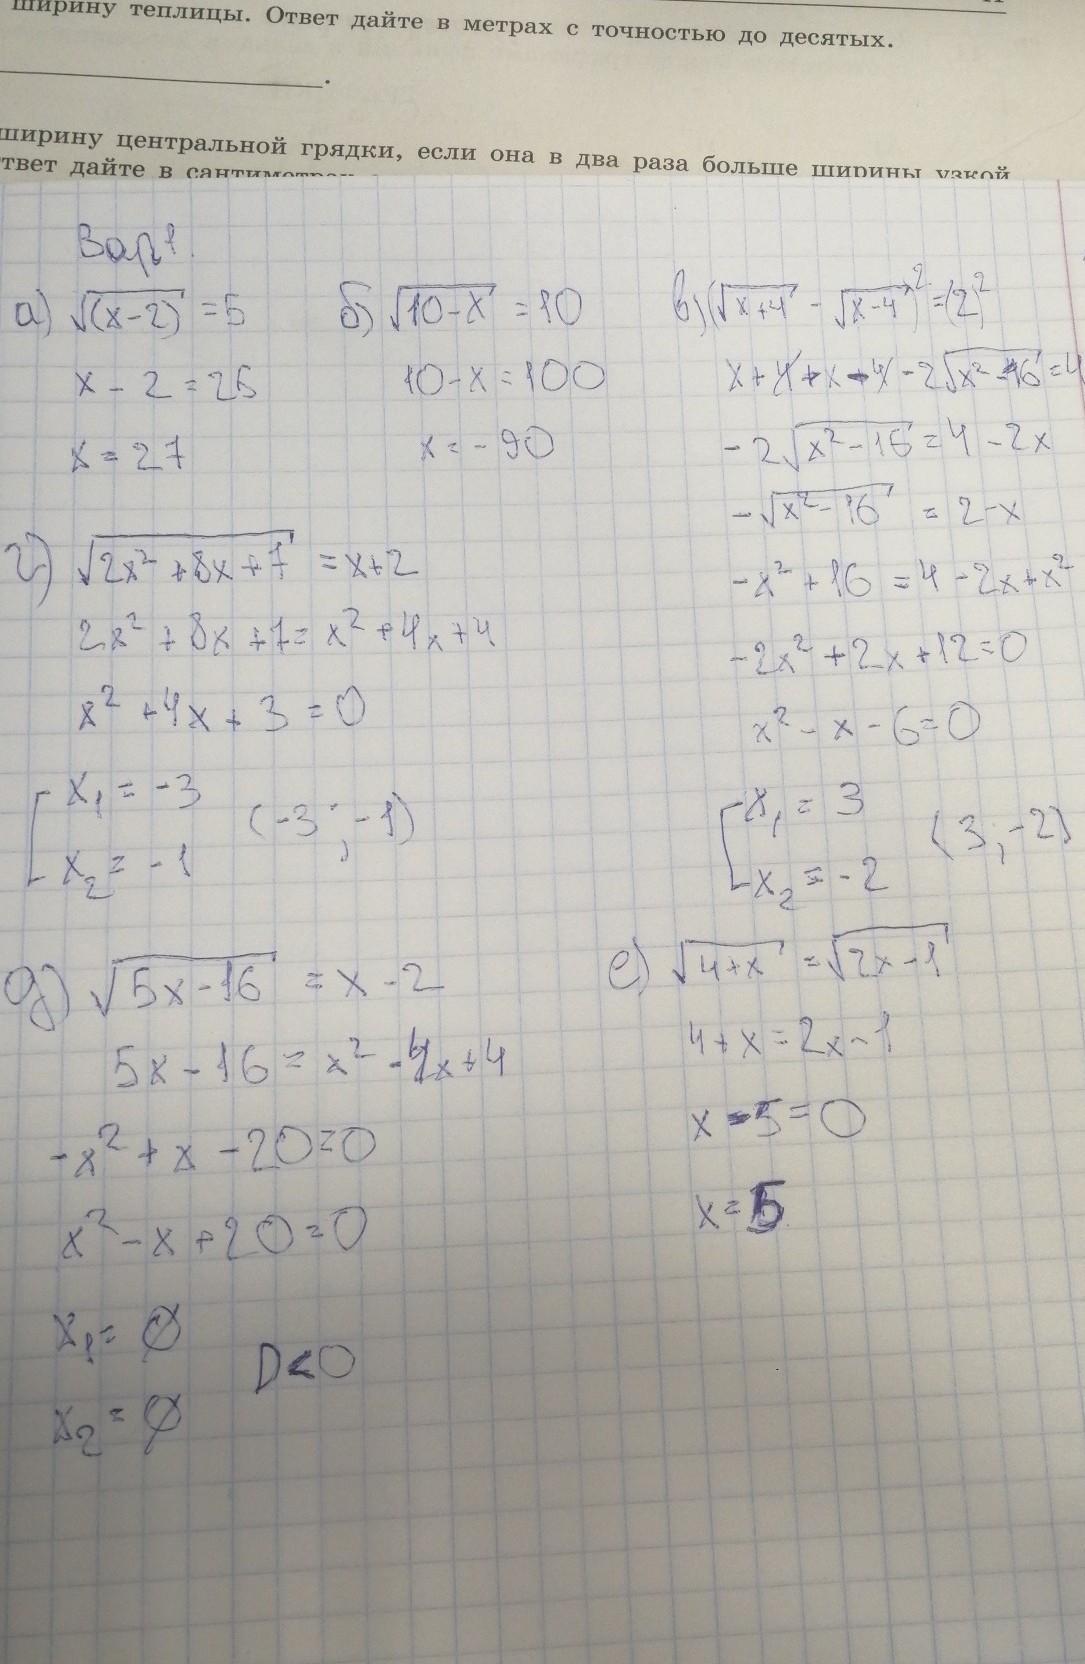 ширину теплицы. Ответ дайте в метрах с точностью до десятых.
ширину центральной грядки, если она в два раза больше ширины узкой
твет дайте в сантиметрах
Вар 1.
а) √(x-2) = 5
x - 2 = 25
x = 27
б) √10-x = 10
10-x = 100
x = -90
в) (√x+4 - √x-4)² = (2)²
x+4+x-4 - 2√x²-16 = 4
-2√x²-16 = 4 - 2x
-√x²-16 = 2-x
-x² + 16 = 4 - 2x + x²
-2x² + 2x + 12 = 0
x² - x - 6 = 0
x₁ = 3
x₂ = -2
(3; -2)
г) √2x² + 8x + 7 = x+2
2x² + 8x + 7 = x² + 4x + 4
x² + 4x + 3 = 0
x₁ = -3
x₂ = -1
(-3; -1)
д) √5x-16 = x - 2
5x - 16 = x² - 4x + 4
-x² + x - 20 = 0
x² - x + 20 = 0
x₁ = ∅
x₂ = ∅
D < 0
е) √4+x = √2x-1
4 + x = 2x - 1
x - 5 = 0
x = 5